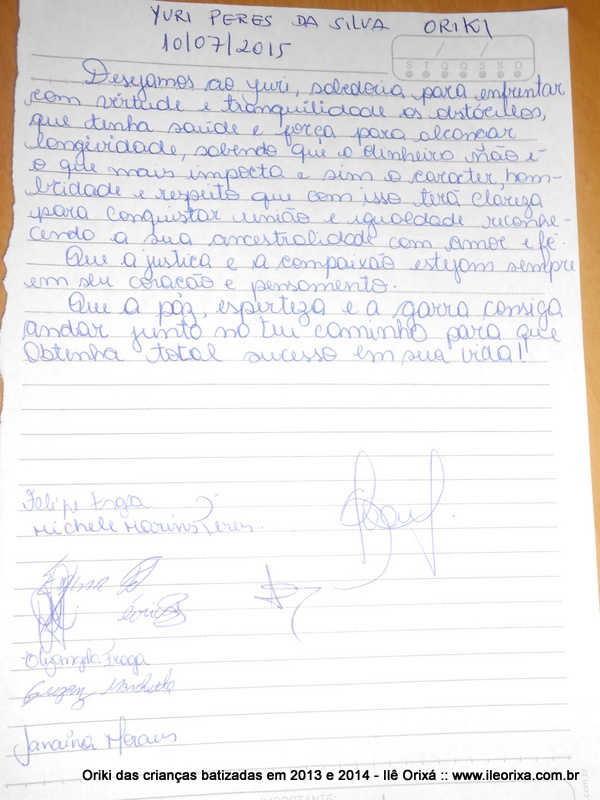 YURI PERES DA SILVA ORIKI
10/07/2015
S T Q Q S S D
Desejamos ao Yuri, sabedoria para enfrentar
com virtude e tranquilidade os obstáculos,
que tenha saúde e força para alcançar
longevidade, sabendo que o dinheiro não é
o que mais importa e sim o caracter, hom-
bridade e respeito que com isso terá clareza
para conquistar união e igualdade reconhe-
cendo a sua ancestralidade com amor e fé.
Que a justiça e a compaixão estejam sempre
em seu coração e pensamento.
Que a páz, esperteza e a garra consiga
andar junto no teu caminho para que
obtenha total sucesso em sua vida!
Felipe
Michele Marins Peres.
Elisangela Fraga
Janaina Moraes
Oriki das crianças batizadas em 2013 e 2014 - Ilê Orixá :: www.ileorixa.com.br
IMPORTANTE: